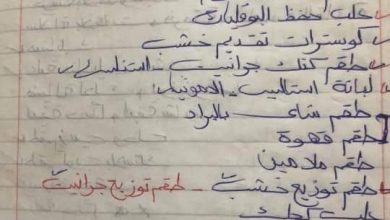 علب حفظ البوقليات
كوسترات تقديم خشب
طقم كنك جرانيت - استنلس
لبانة استالليس - المونيا
طقم شاى بالبراد
طقم قهوة
طقم ملامين
طقم توزيع خشب - طقم توزيع جرانيت